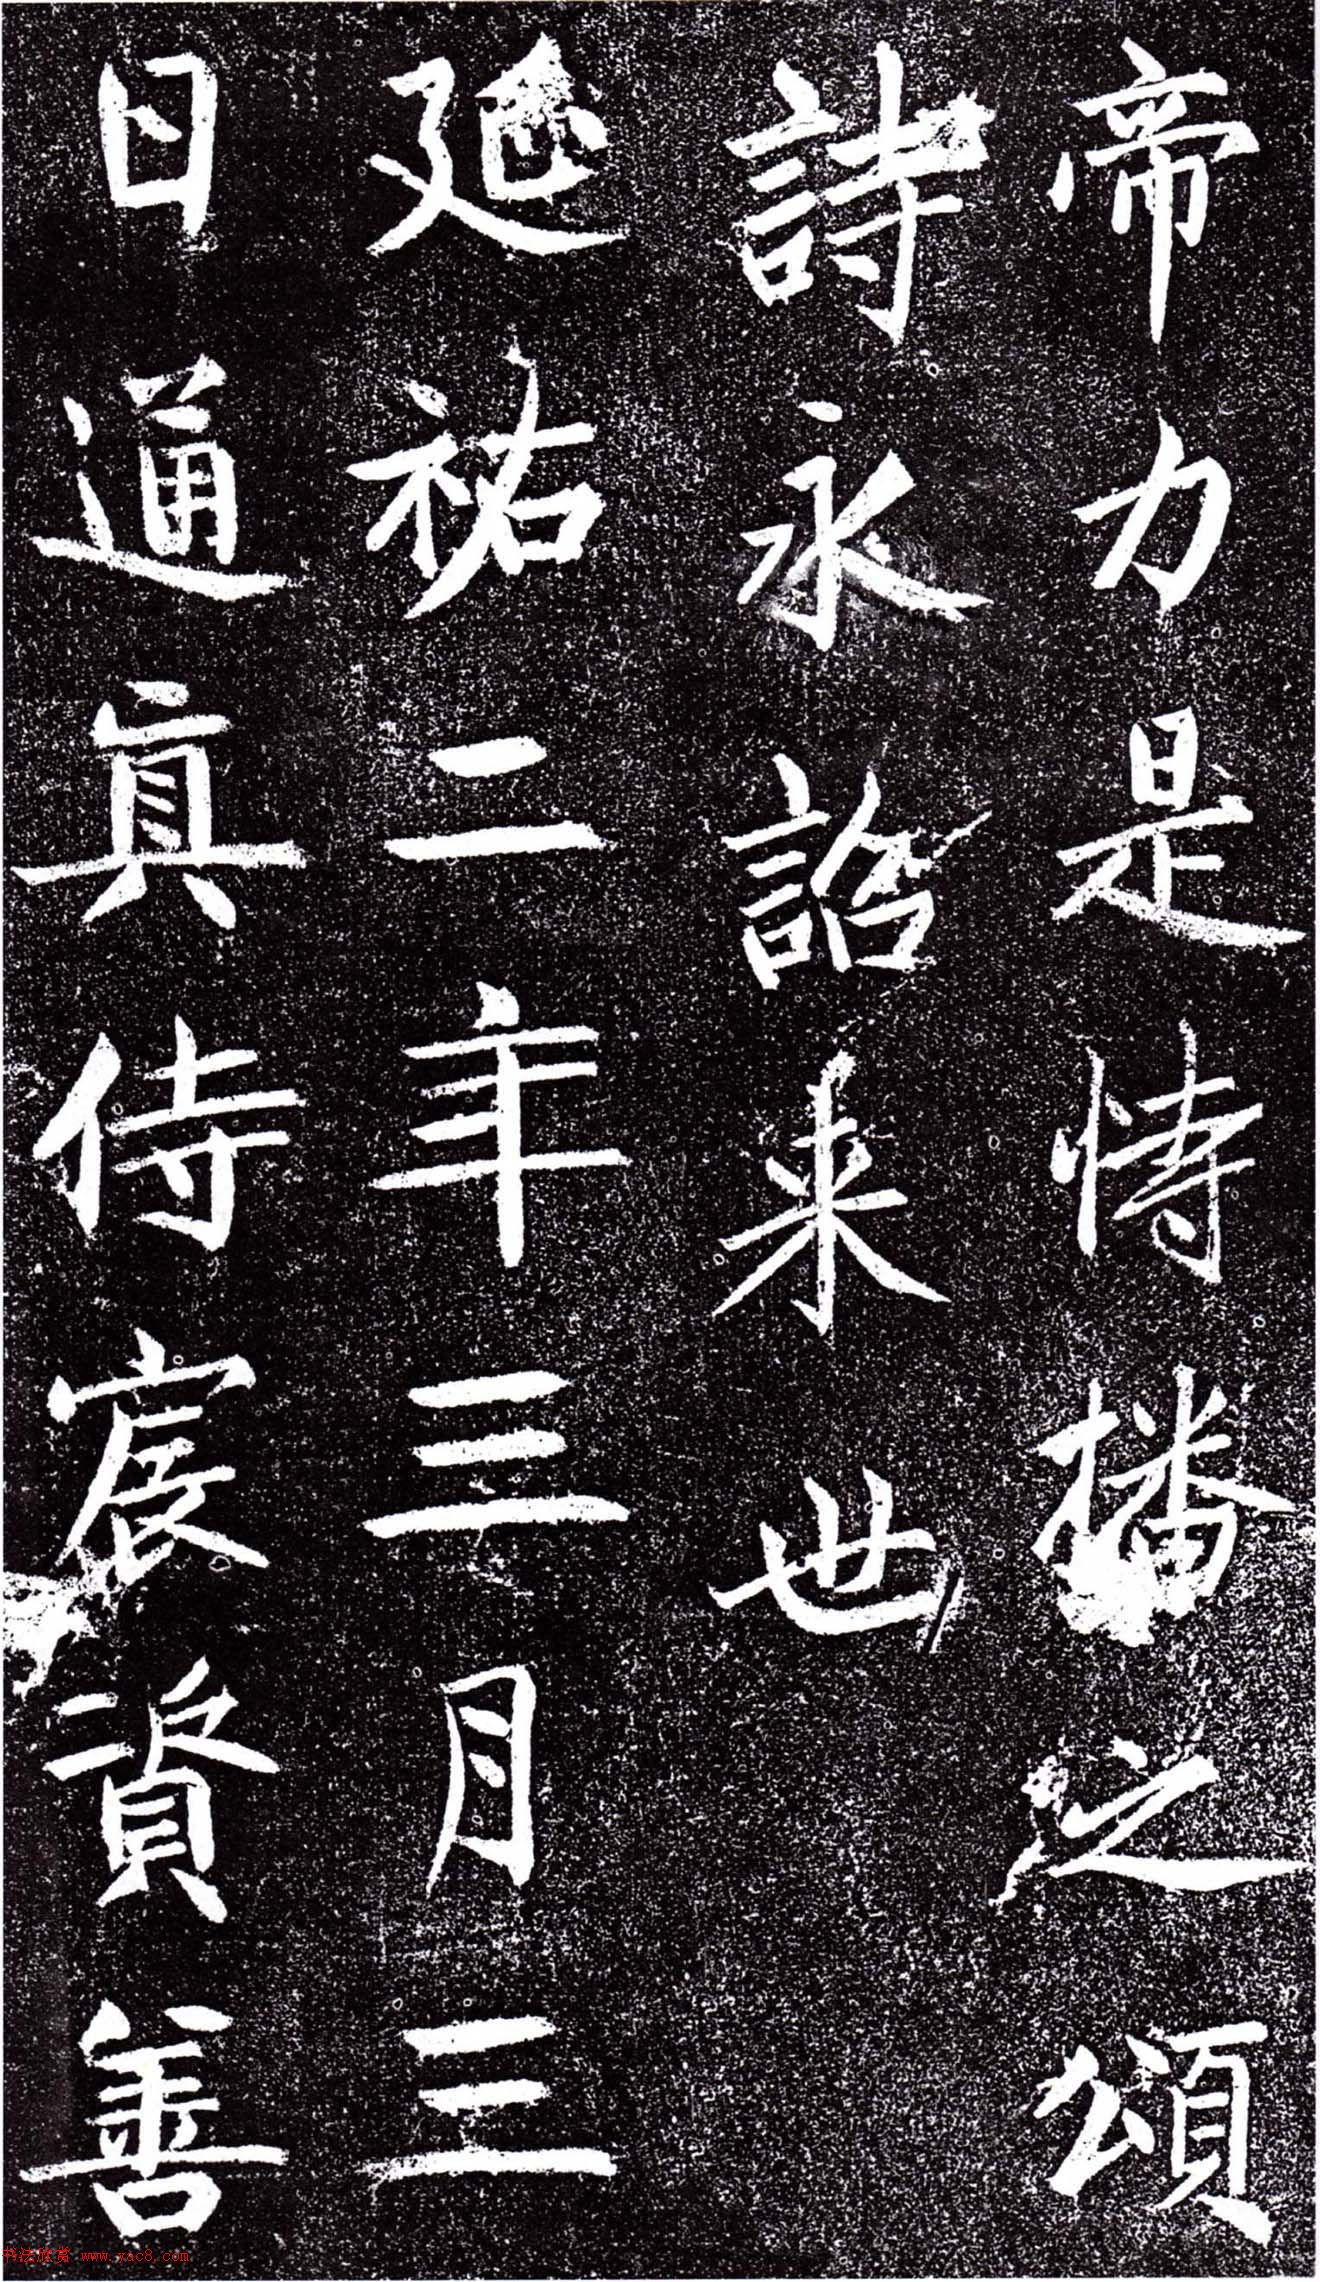 帝力是恃播之頌
詩永詔来世
延祐二年三月三
日通真侍宸賛善
书法欣赏 www.yac8.com